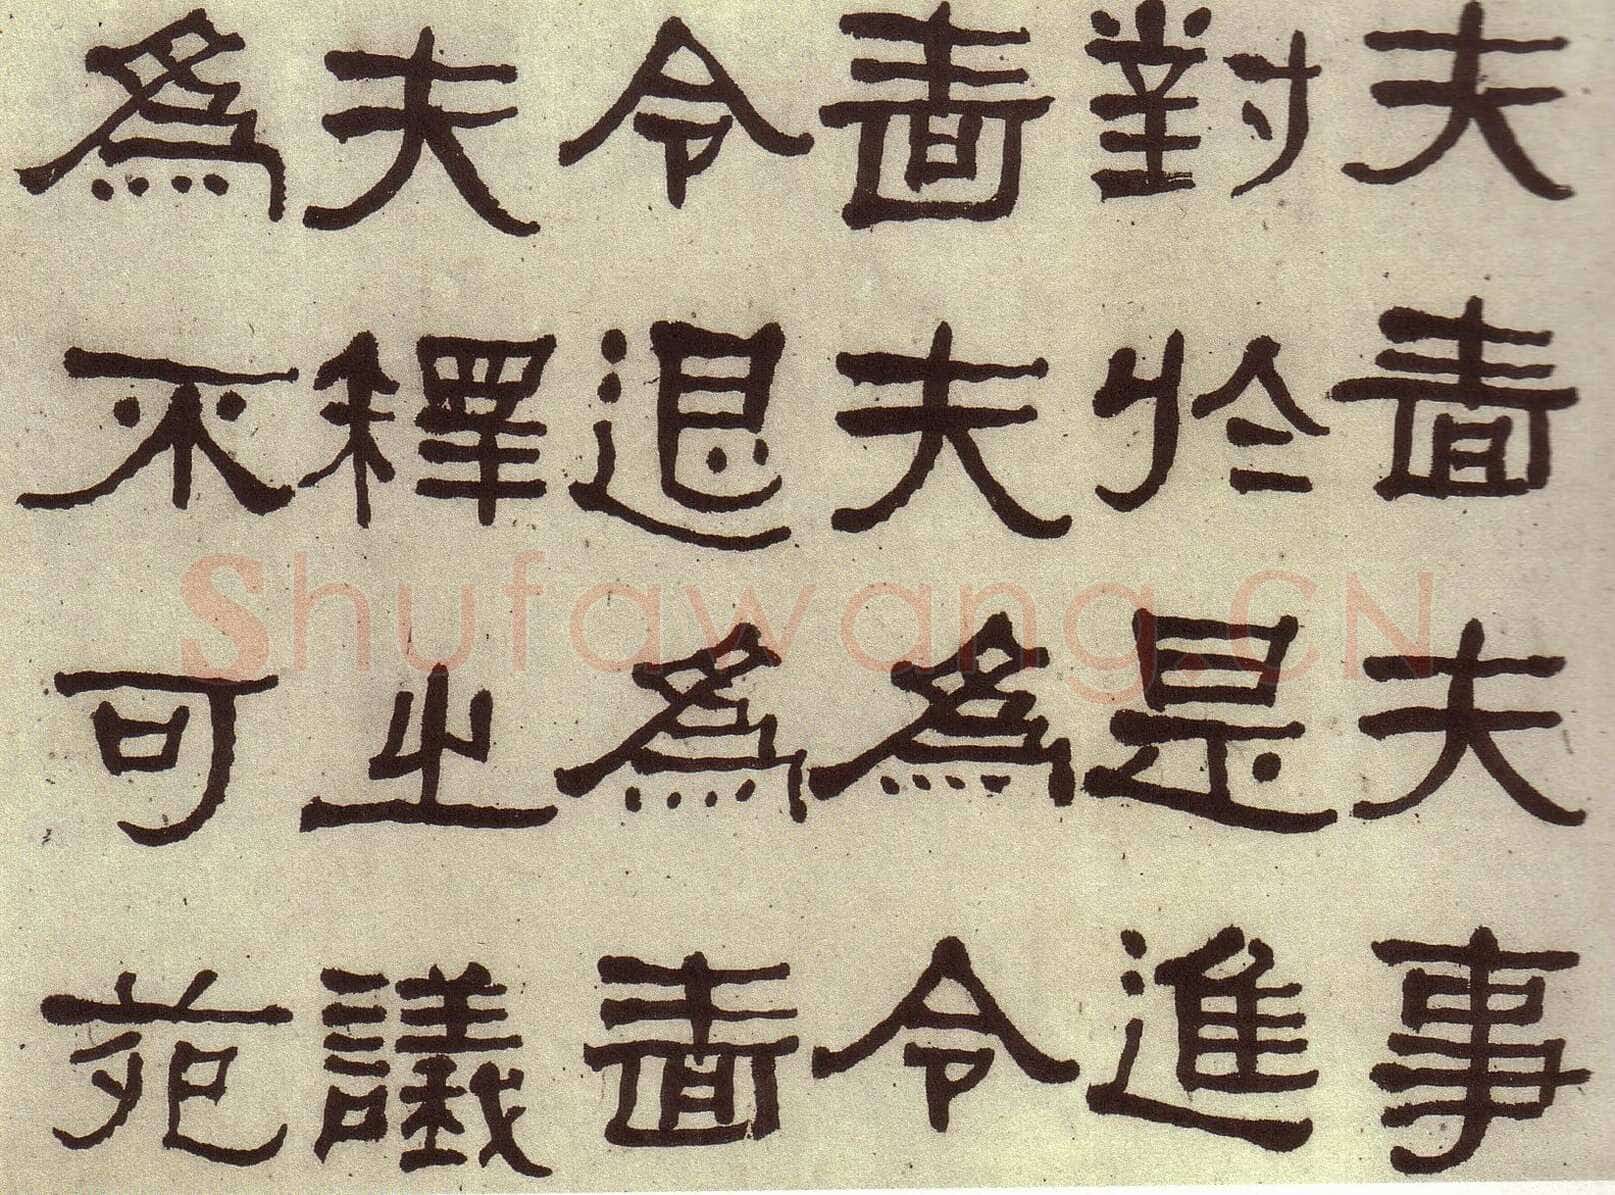 夫嗇夫事
對於是進
嗇夫為令
令退為嗇
夫釋之議
為不可苑
Shufawang.CN